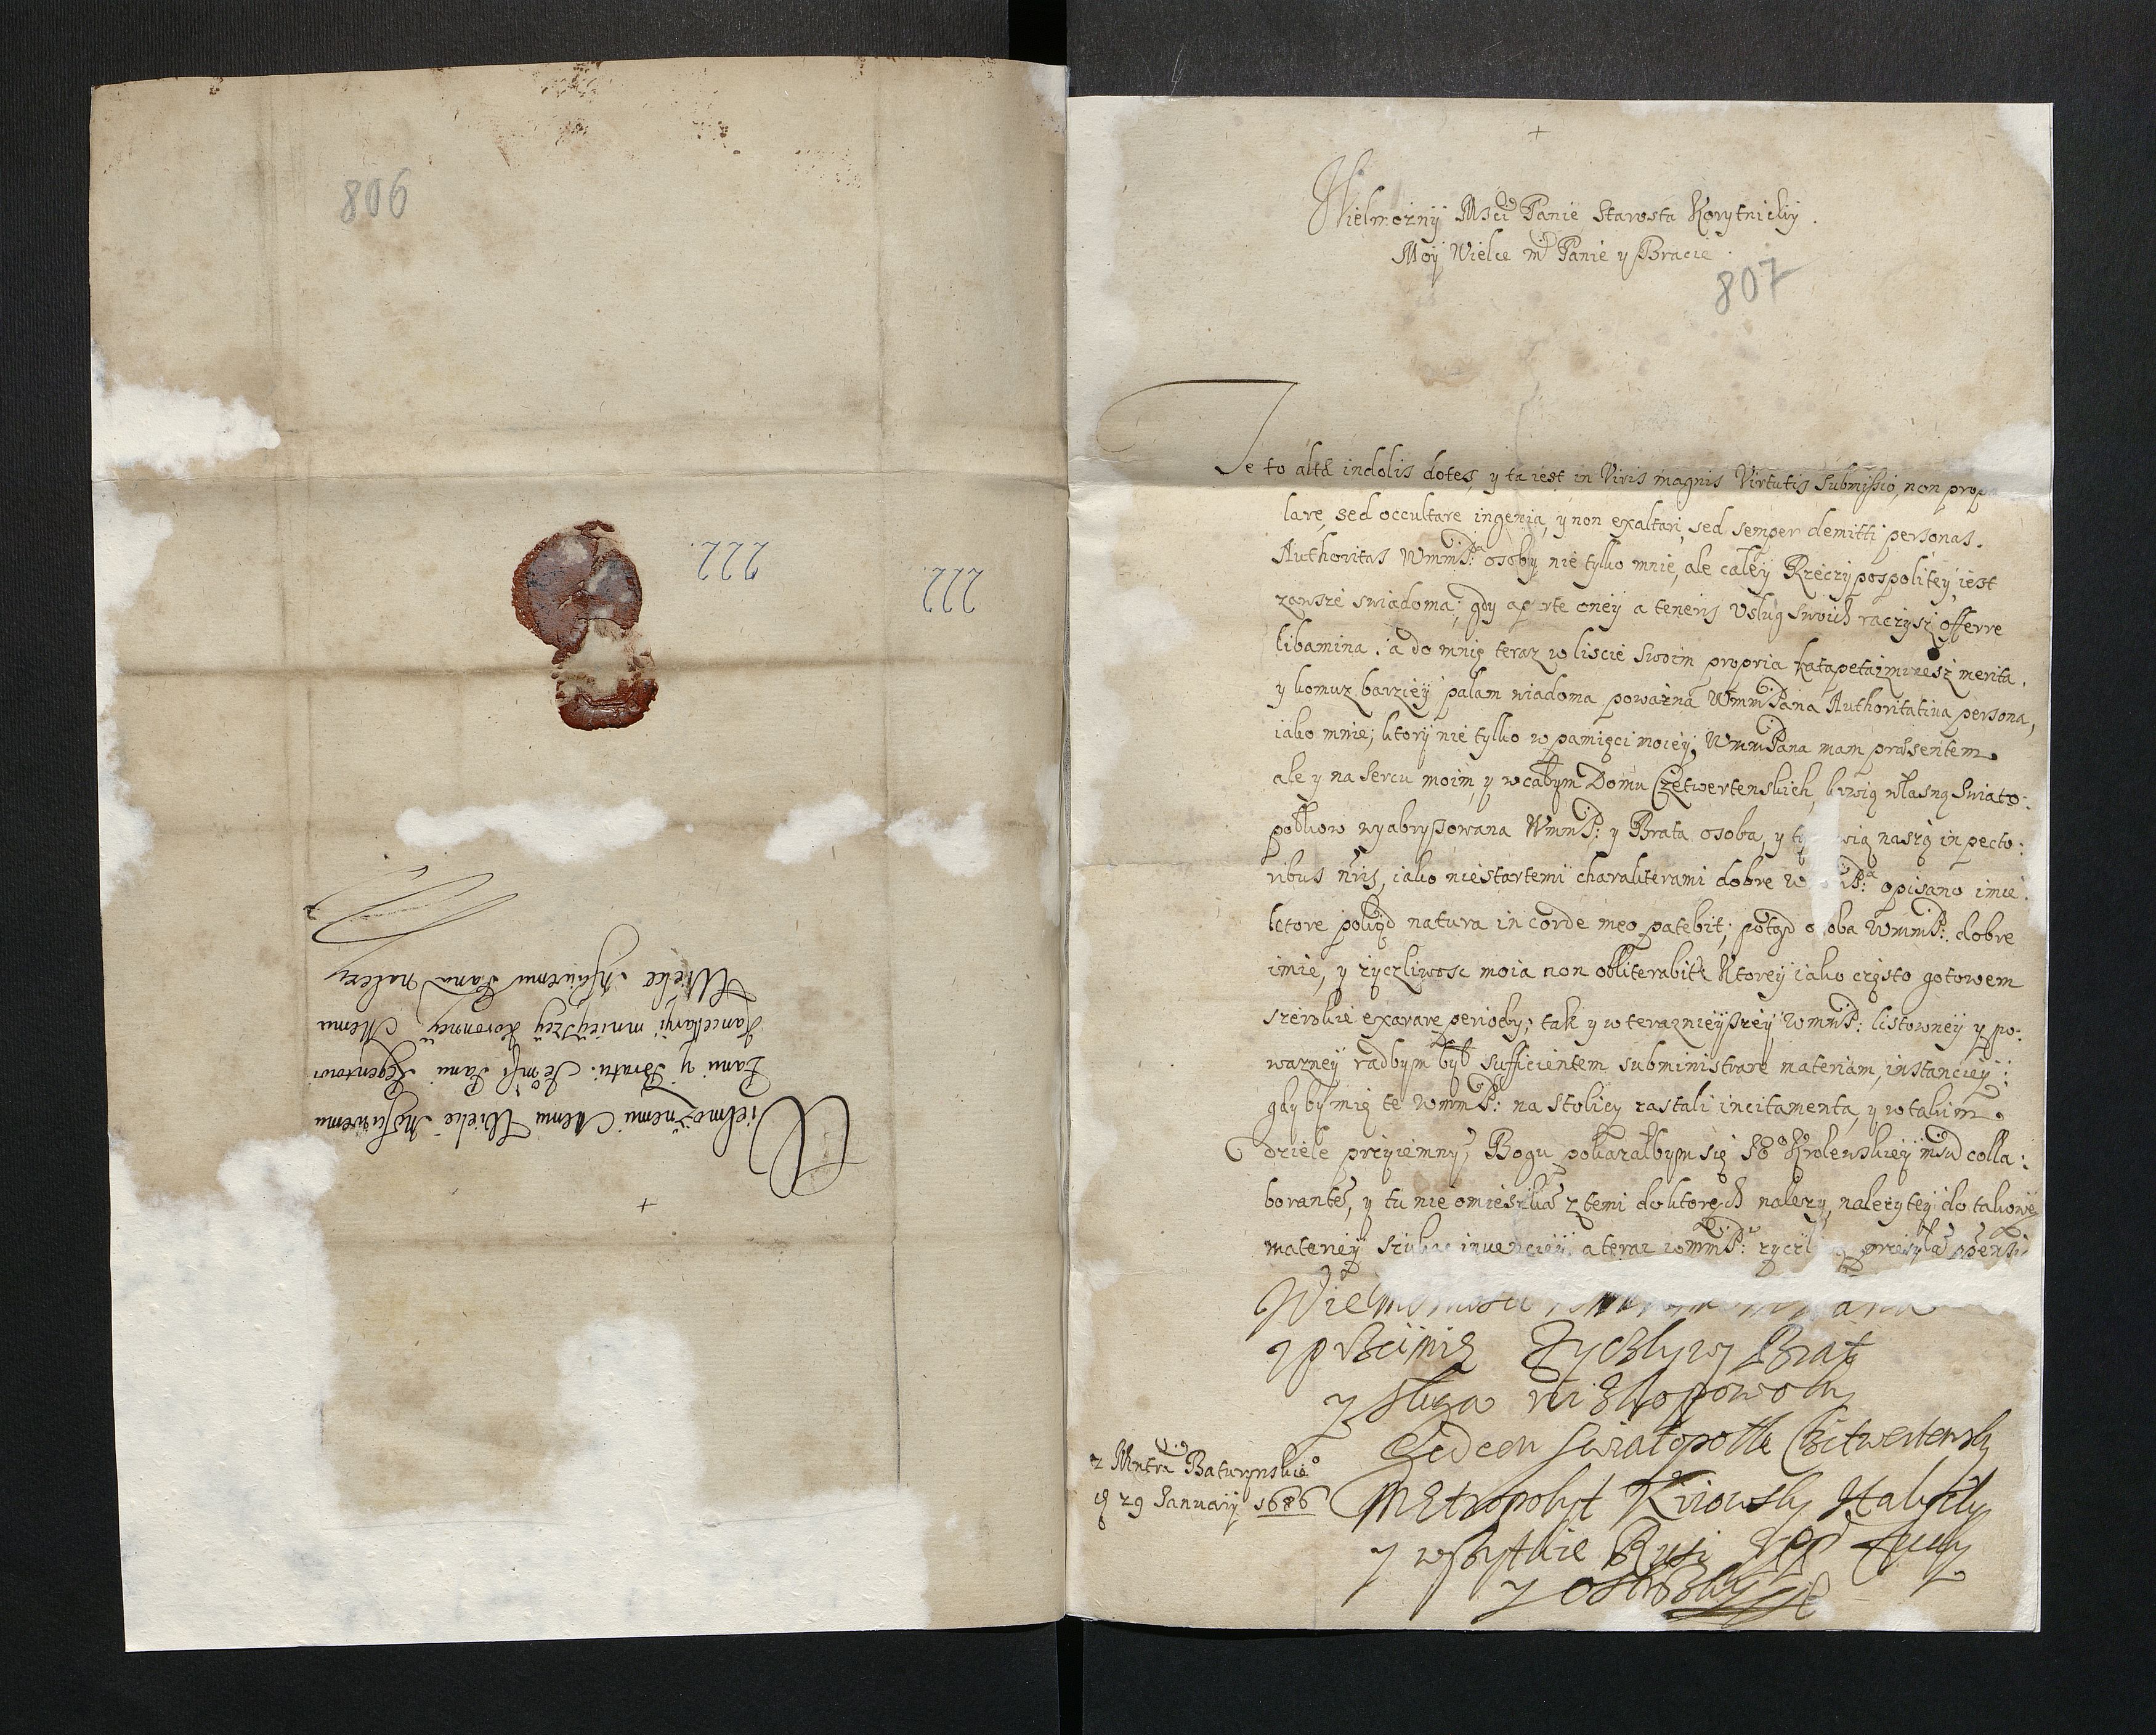 806
222.
222.
+
Wielmożnemu Memu Wielce Mściwemu
Panu y Bratu. Je° mści Panu Regentowi
Kancellaryi mnieyszey Koronney, Memu
Wielce Mściwemu Panu należy
+
Wielmożnÿ Msci Panie Starosta Korytnickÿ.
Moÿ Wielce m Panie y Bracie.
807
Te to altæ indolis dotes, y ta iest in Viris magnis Virtutis Submissio, non propa
lare, sed occultare ingenia, y non exaltari, sed semper demitti personas.
Authoritas WmmP:ª osoby nie tylko mnie, ale całeÿ Rzeczÿpospoliteÿ iest
zawsze swiadoma; gdy aperte oneÿ a teneris Usług swoich raczysz offerre
libamina. a do mnie teraz w liscie swoim propria merita.
y komuz barzieÿ palam wiadoma poważna WmmPana Authoritativa persona,
iako mnie; ktorÿ nie tylko w pamięci moieÿ WmmPana mam præsentem
ale y na sercu moim, y w całym Domu Czetwertenskich, krwią własną Swiato:
połkow wyabryssowana WmmP: y Brata osoba, y się naszą in pecto:
ribus nris, iako niestartemi charakterami dobre opisano imie.
ktore pokąd natura in corde meo patebit; potąd o oba WmmP: dobre
imie, y życzliwosc moia non obliterabit. Ktoreÿ iako często gotowem
szerokie exarare periody; tak y w teraznieÿszeÿ WmmP: listowneÿ y po:
warney radbym był sufficientem subministrare materiam, instancieÿ:
gdyby mię te WmmP: na stolicy zastali incitamenta, y w takim
dziele przyiemny Bogu pokazałbym się Krolewskieÿ mści colla:
borante, y tu nie omieszkam z temi do ktorych nalezy, nalezytey do takowey
materieÿ szukac invencieÿ, a teraz WmmP:
Wielm
uprzeimie Zyczlywy Brat
y sluga powolny
Gedeon Swiatopolk Czetwertensky
Metropolyt Kiiowsky Halycky
y wszystkie Rusi
z Mntra Baturynskie°
29 Januarÿ 1686